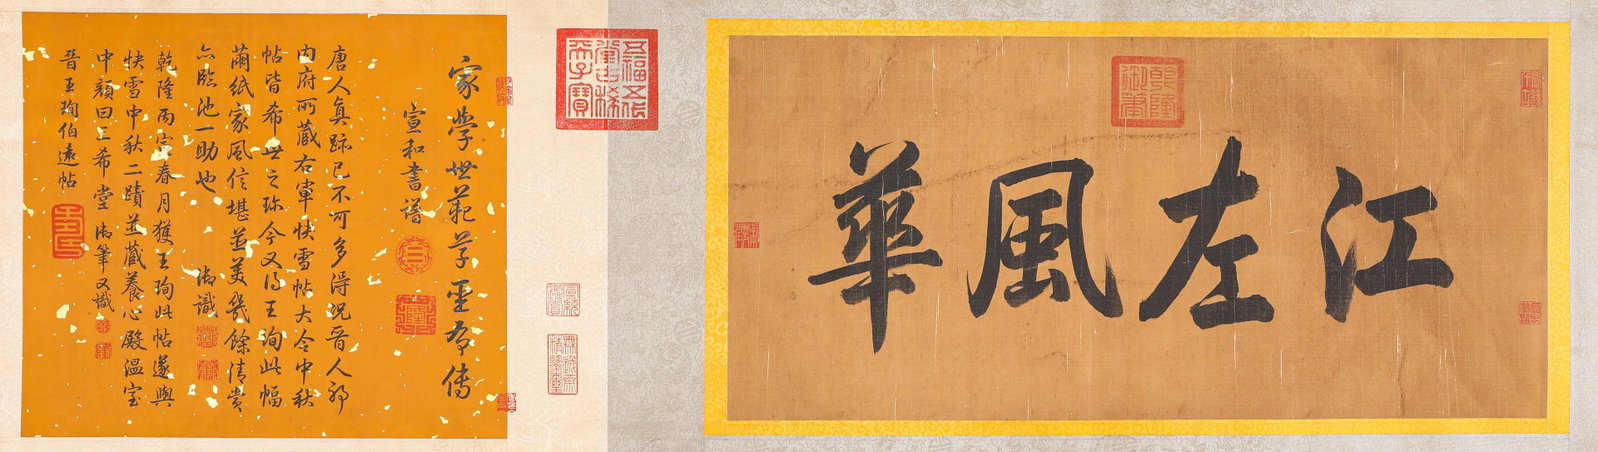 江左風華
乾隆御筆
五福五代堂古稀天子寶
家學世範草聖有傳
宣和書譜
唐人真跡已不可多得況晉人耶
內府所藏右軍快雪帖大令中秋
帖皆希世之珍今又得王珣此幅
繭紙家風信堪並美幾餘清賞
亦臨池一助也
御識
乾隆丙寅春月獲王珣此帖遂與
快雪中秋二蹟並藏養心殿溫室
中顏曰三希堂御筆又識
晉王珣伯遠帖